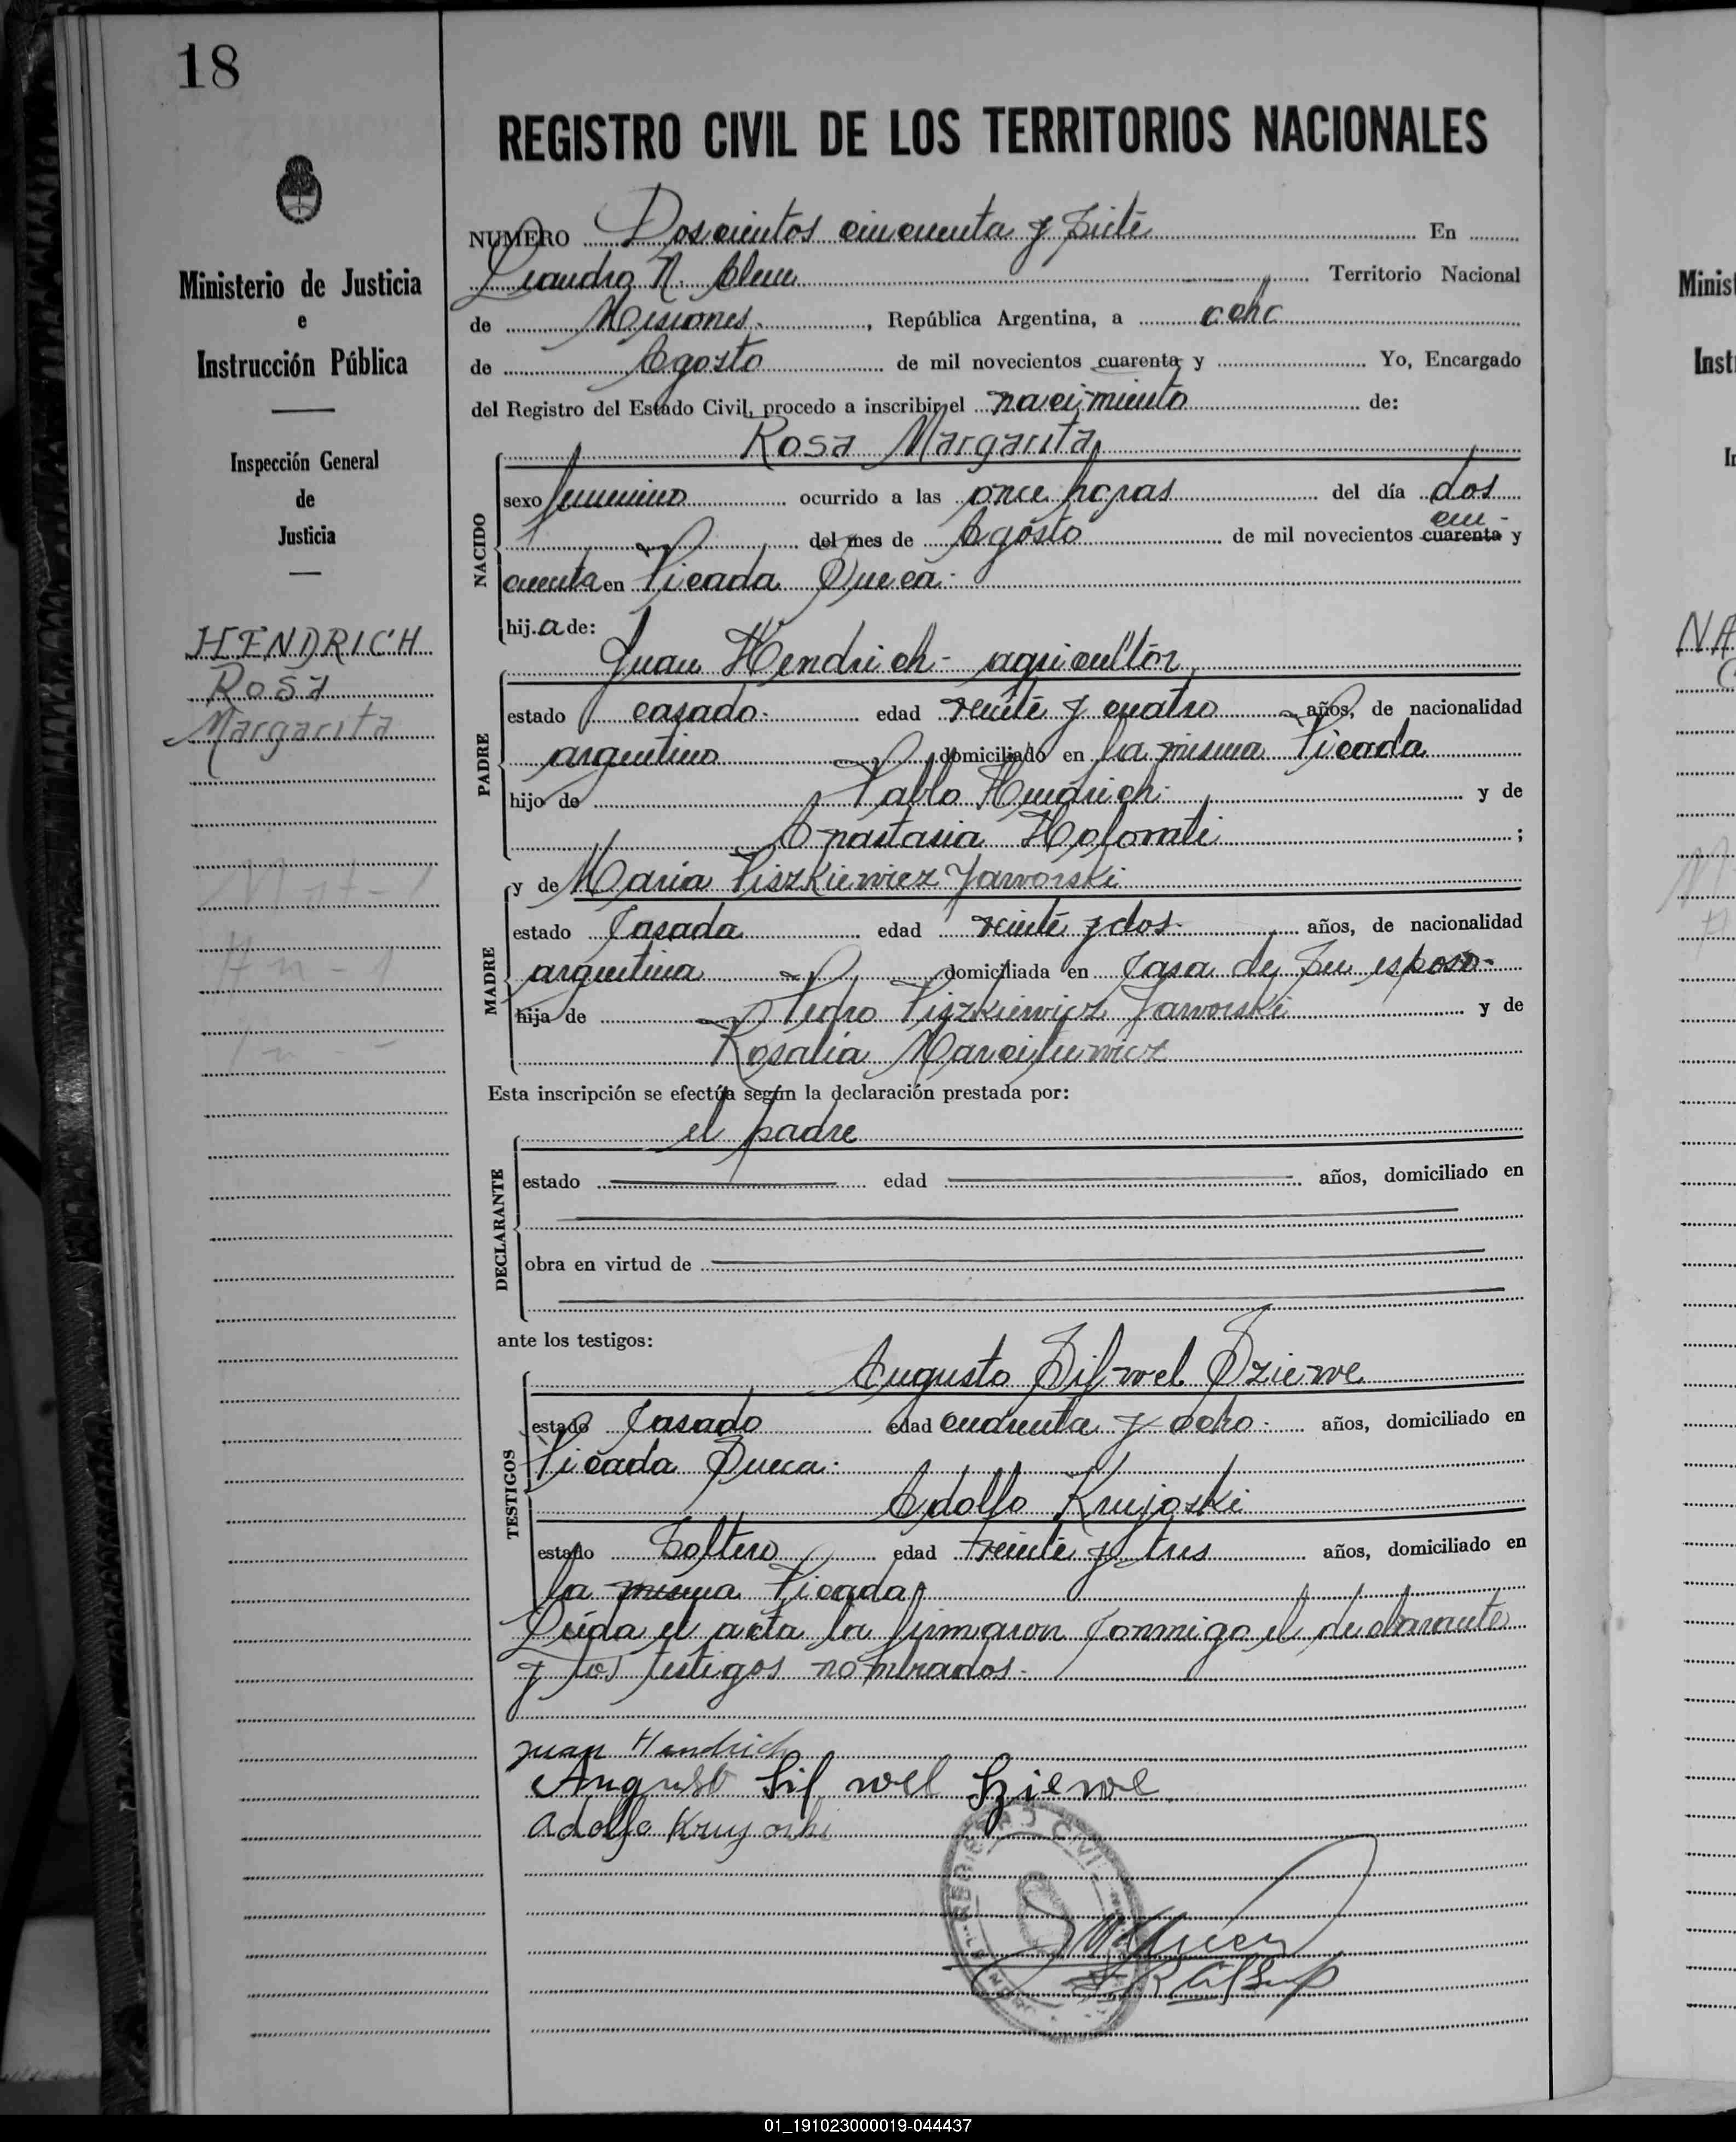 18
REGISTRO CIVIL DE LOS TERRITORIOS NACIONALES
Ministerio de Justicia
e
Instrucción Pública
Inspección General
de
Justicia
HENDRICH
Rosa
Margarita
NUMERO Doscientos cincuenta y siete En
Leandro N. Alem Territorio Nacional
de Misiones, República Argentina, a ocho
de Agosto de mil novecientos cuarenta y Yo, Encargado
del Registro del Estado Civil, procedo a inscribir el nacimiento de:
Rosa Margarita
NACIDO
sexo femenino ocurrido a las once horas del día dos
del mes de Agosto de mil novecientos cuarenta y cin-
cuenta en Picada Sueca.
hija de:
Juan Hendrich - agricultor
PADRE
estado casado edad veinte y cuatro años, de nacionalidad
argentino domiciliado en la misma Picada
hijo de Pablo Hendrich y de
Anastasia ;
y de María Piszkiewicz Jaworski
MADRE
estado Casada edad veinte y dos años, de nacionalidad
argentina domiciliada en Casa de su esposo
hija de Pedro Piszkiewicz Jaworski y de
Rosalía
Esta inscripción se efectúa según la declaración prestada por:
el padre
DECLARANTE
estado edad años, domiciliado en
obra en virtud de
ante los testigos:
Augusto Silwel Sziewe
TESTIGOS
estado Casado edad cuarenta y ocho años, domiciliado en
Picada Sueca
Adolfo Krujoski
estado Soltero edad veinte y tres años, domiciliado en
la misma Picada
Leída el acta la firmaron conmigo el declarante
y los testigos nombrados.
Juan Hendrich
August Sil wel Sziewe
Adolfo Krujoski
REGISTRO CIVIL
01_191023000019-044437
Minist
Inst